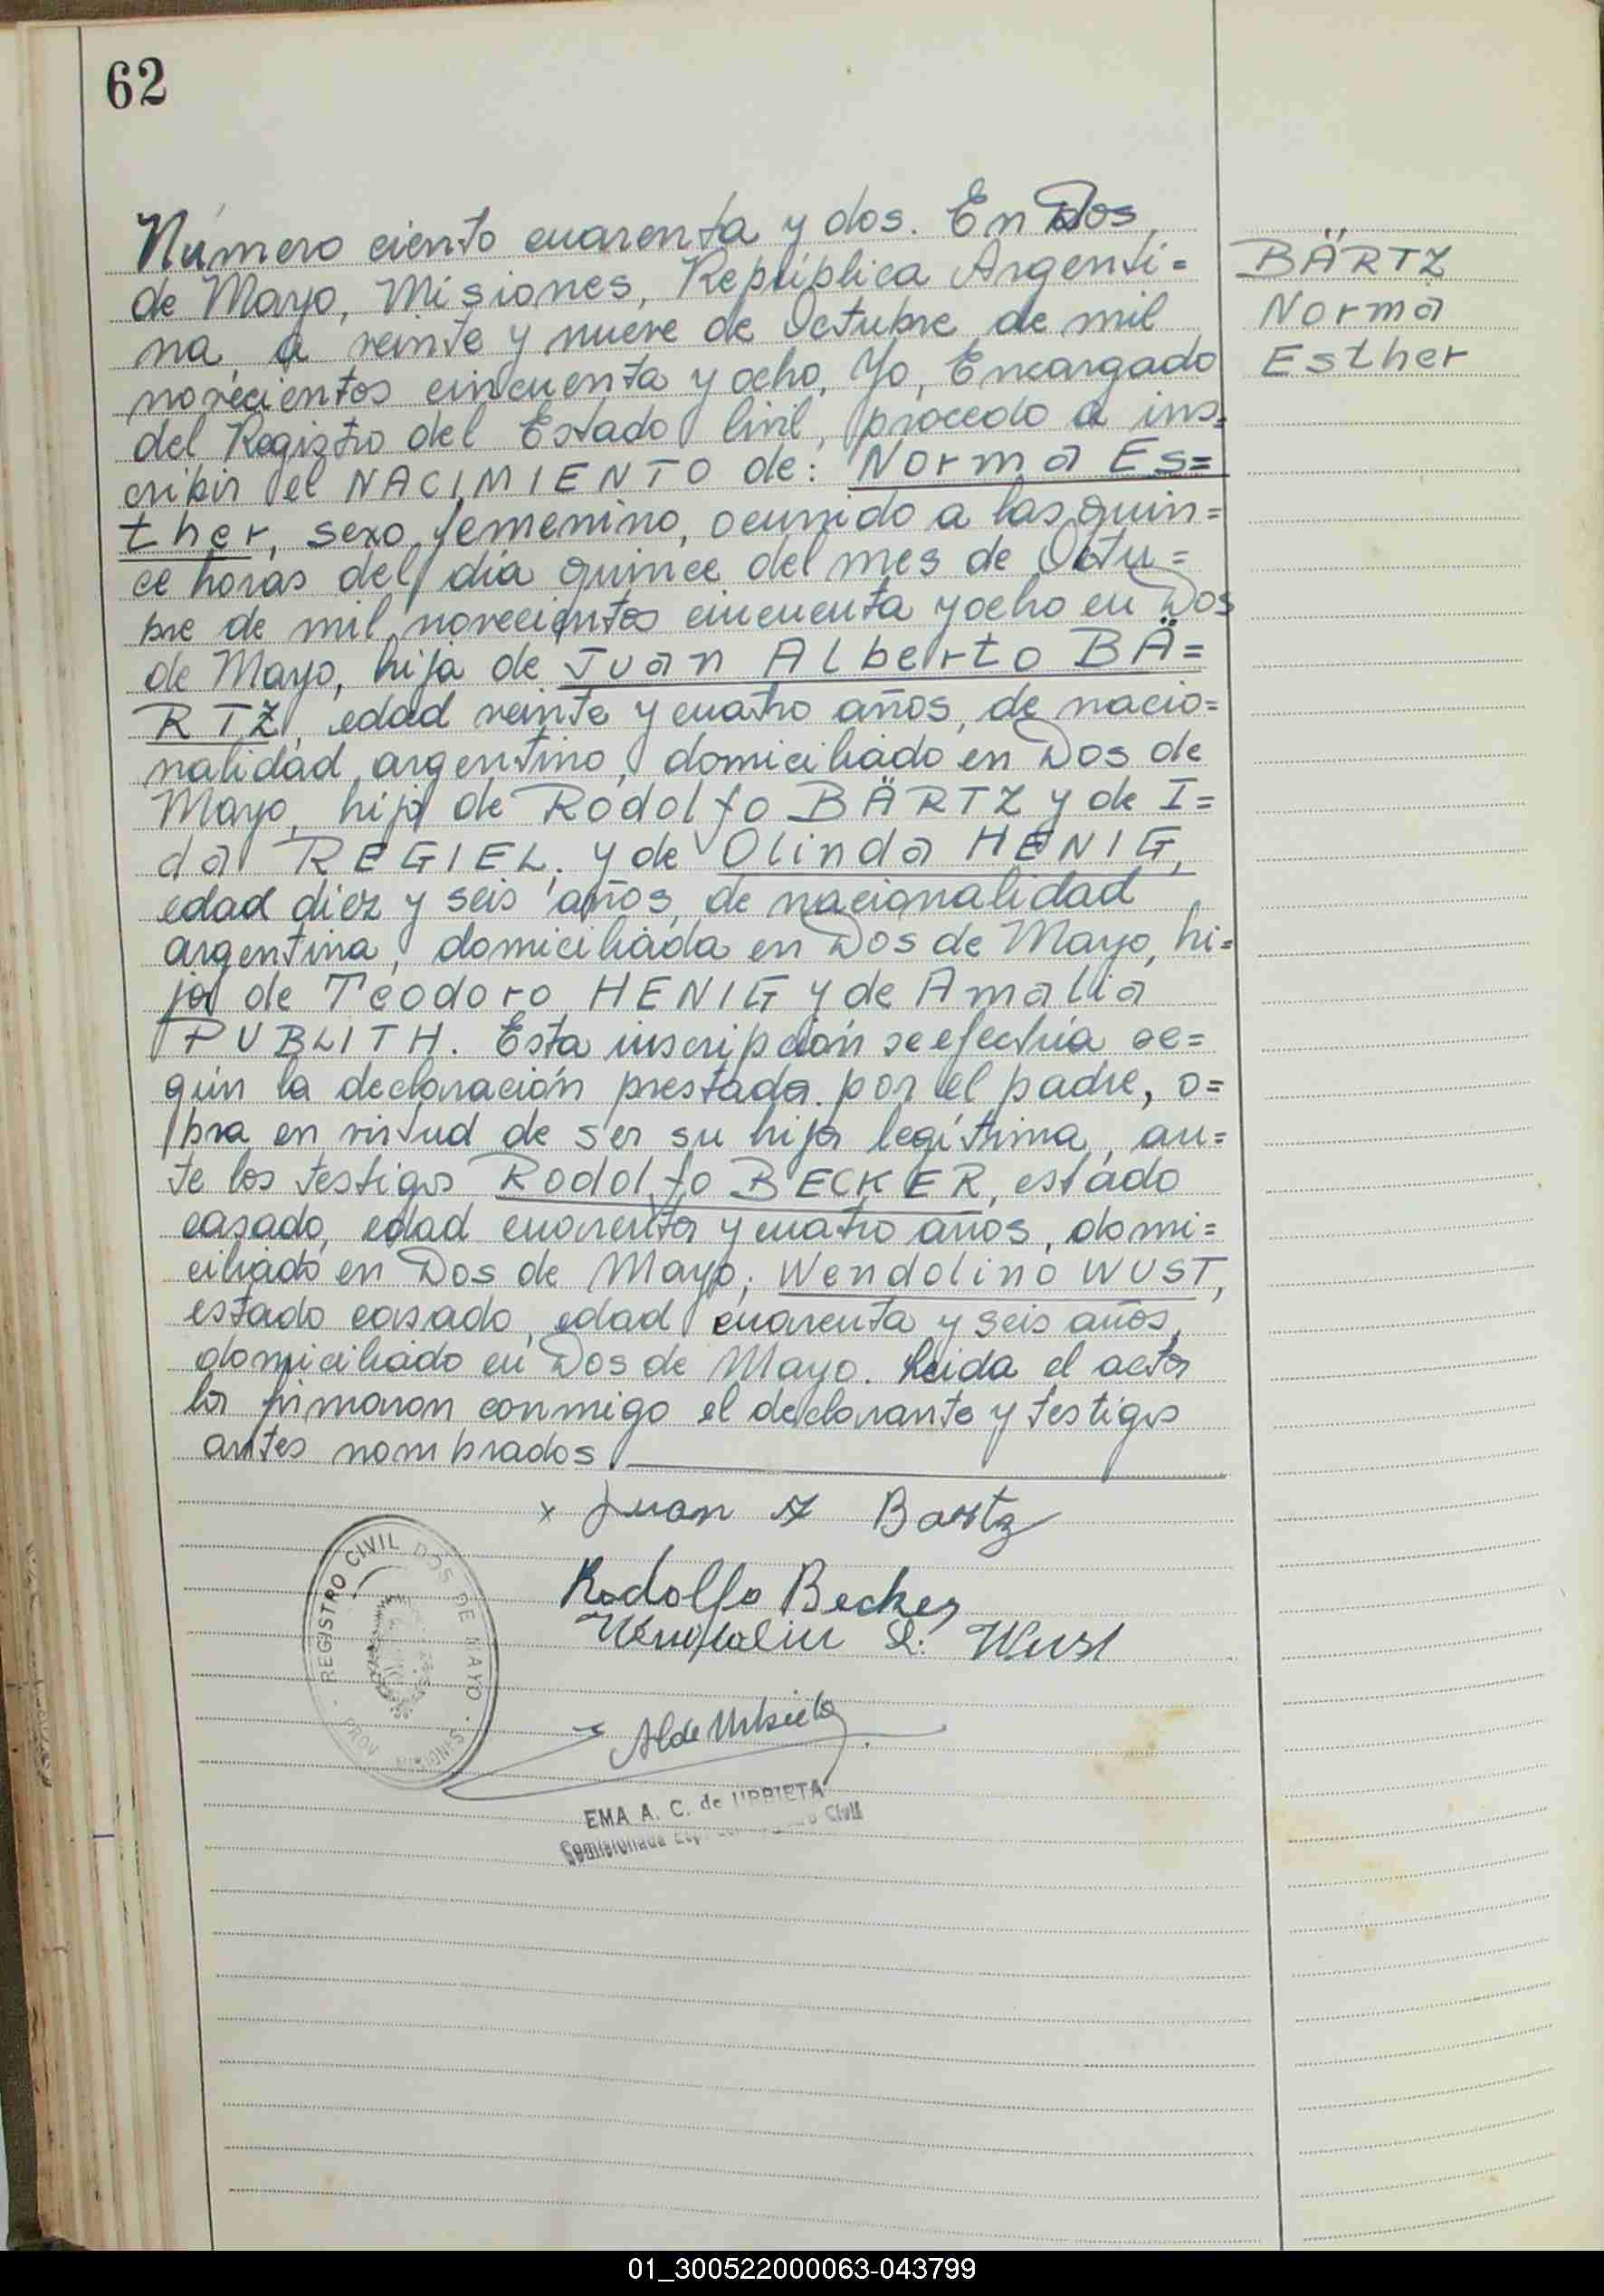 62
Número ciento cuarenta y dos. En Dos
de Mayo, Misiones, República Argenti=
na, a veinte y nueve de Octubre de mil
novecientos cincuenta y ocho, Yo, Encargado
del Registro del Estado Civil, procedo a ins=
cribir el NACIMIENTO de: Norma Es=
ther, sexo femenino, ocurrido a las quin=
ce horas del día quince del mes de Octu=
bre de mil novecientos cincuenta y ocho en Dos
de Mayo, hija de Juan Alberto BÄ=
RTZ, edad veinte y cuatro años, de nacio=
nalidad argentino, domiciliado en Dos de
Mayo, hijo de Rodolfo BÄRTZ y de I=
da REGIEL; y de Olinda HENIG,
edad diez y seis años, de nacionalidad
argentina, domiciliada en Dos de Mayo, hi=
ja de Teodoro HENIG y de Amalia
PUBLITH. Esta inscripción se efectúa se=
gún la declaración prestada por el padre, o=
bra en virtud de ser su hija legítima, an=
te los testigos Rodolfo BECKER, estado
casado, edad cuarenta y cuatro años, domi=
ciliado en Dos de Mayo; Wendolino WUST,
estado casado, edad cuarenta y seis años,
domiciliado en Dos de Mayo. Leida el acta
la firmaron conmigo el declarante y testigos
antes nombrados
BÄRTZ
Norma
Esther
x Juan A Bartz
Rodolfo Becker
Wendolin L. Wust
REGISTRO CIVIL DOS DE MAYO
PROV. MISIONES
A de Urbieta
EMA A. C. de URBIETA
Comisionada Civil
01_300522000063-043799